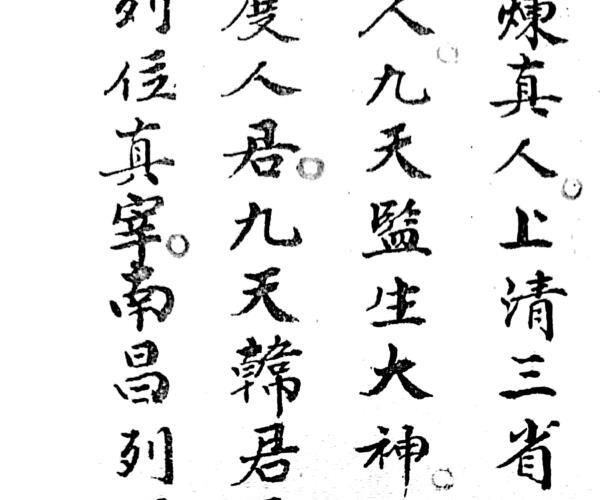 煉真人。上清三省
人。九天監生大神。
度人君。九天韓君
列位真宰。南昌列